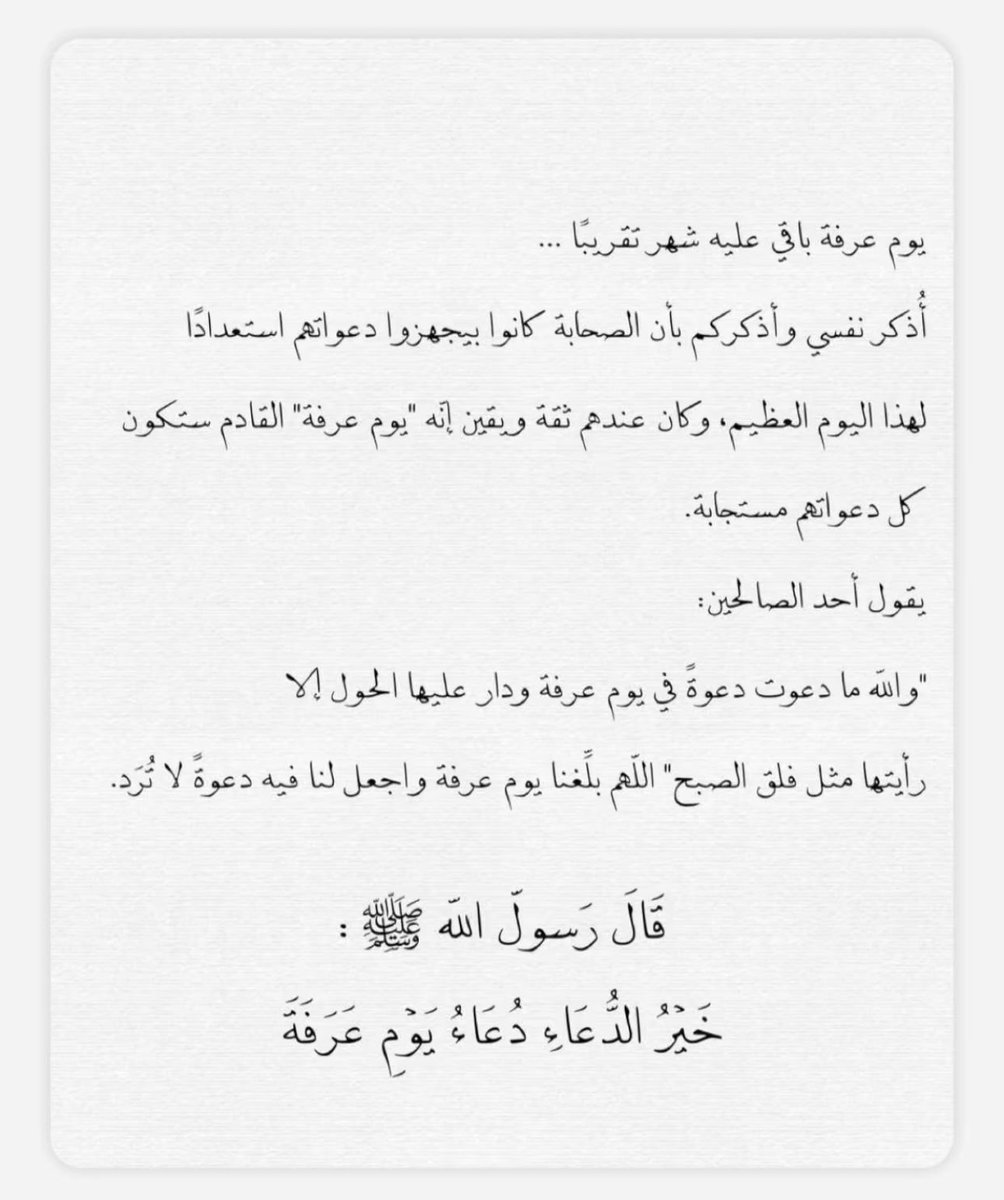 يوم عرفة باقي عليه شهر تقريبًا ...
أُذكر نفسي وأذكركم بأن الصحابة كانوا بيجهزوا دعواتهم استعدادًا
لهذا اليوم العظيم، وكان عندهم ثقة ويقين إنّه "يوم عرفة" القادم ستكون
كل دعواتهم مستجابة.
يقول أحد الصالحين:
"والله ما دعوت دعوةً في يوم عرفة ودار عليها الحول إلا
رأيتها مثل فلق الصبح" اللّهم بلِّغنا يوم عرفة واجعل لنا فيه دعوةً لا تُرَد.
قَالَ رَسولّ اللّه ﷺ :
خَيْرُ الدُّعَاءِ دُعَاءُ يَوْمِ عَرَفَةَ